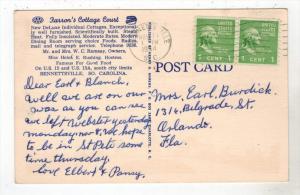 Farror's Cottage Court
New DeLuxe Individual Cottages. Exceptionally
well furnished. Scientifically built. Steam
Heat. Fully Insulated. Moderate Rates. Modern
Dining Room serving choice Foods. Radios,
mail and telegraph service. Telephone
Mr. and Mrs. W. C. Farrow, Owners,
Miss Hazel E. Rushing, Hostess.
Famous For Good Food
On U.S. 15 and U.S. 15A, south city limits
BENNETTSVILLE, SO. CAROLINA.
Dear Earl & Blanch,
Well we are on our
way as you can see
we left Webster yesterday
monday nov 8, We hope
to be in St Pete some
time thursday,
Love Elbert & Pansy.
POST CARD
UNITED STATES
POSTAGE
1 CENT
UNITED STATES
POSTAGE
1 CENT
Mrs. Earl Burdick.
1314 Belgrade, St.
Orlando.
Fla.